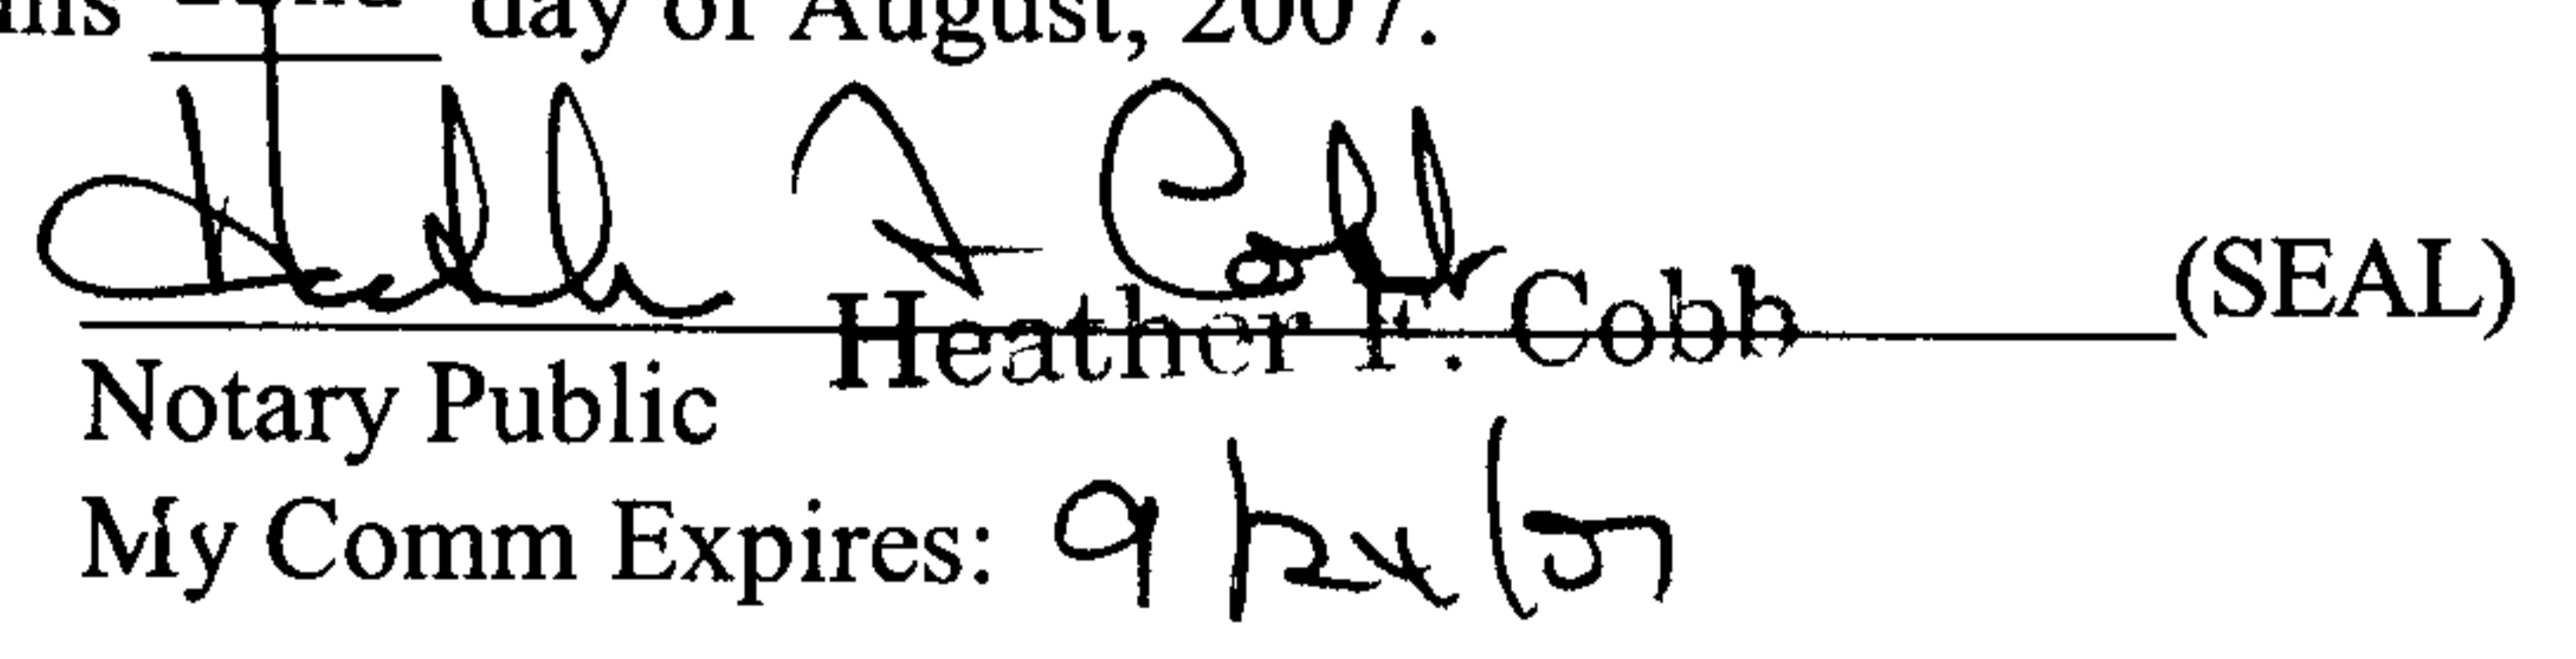 day of August, 2007.
Heather F. Cobb (SEAL)
Heather F. Cobb
Notary Public
My Comm Expires: 9/24/07